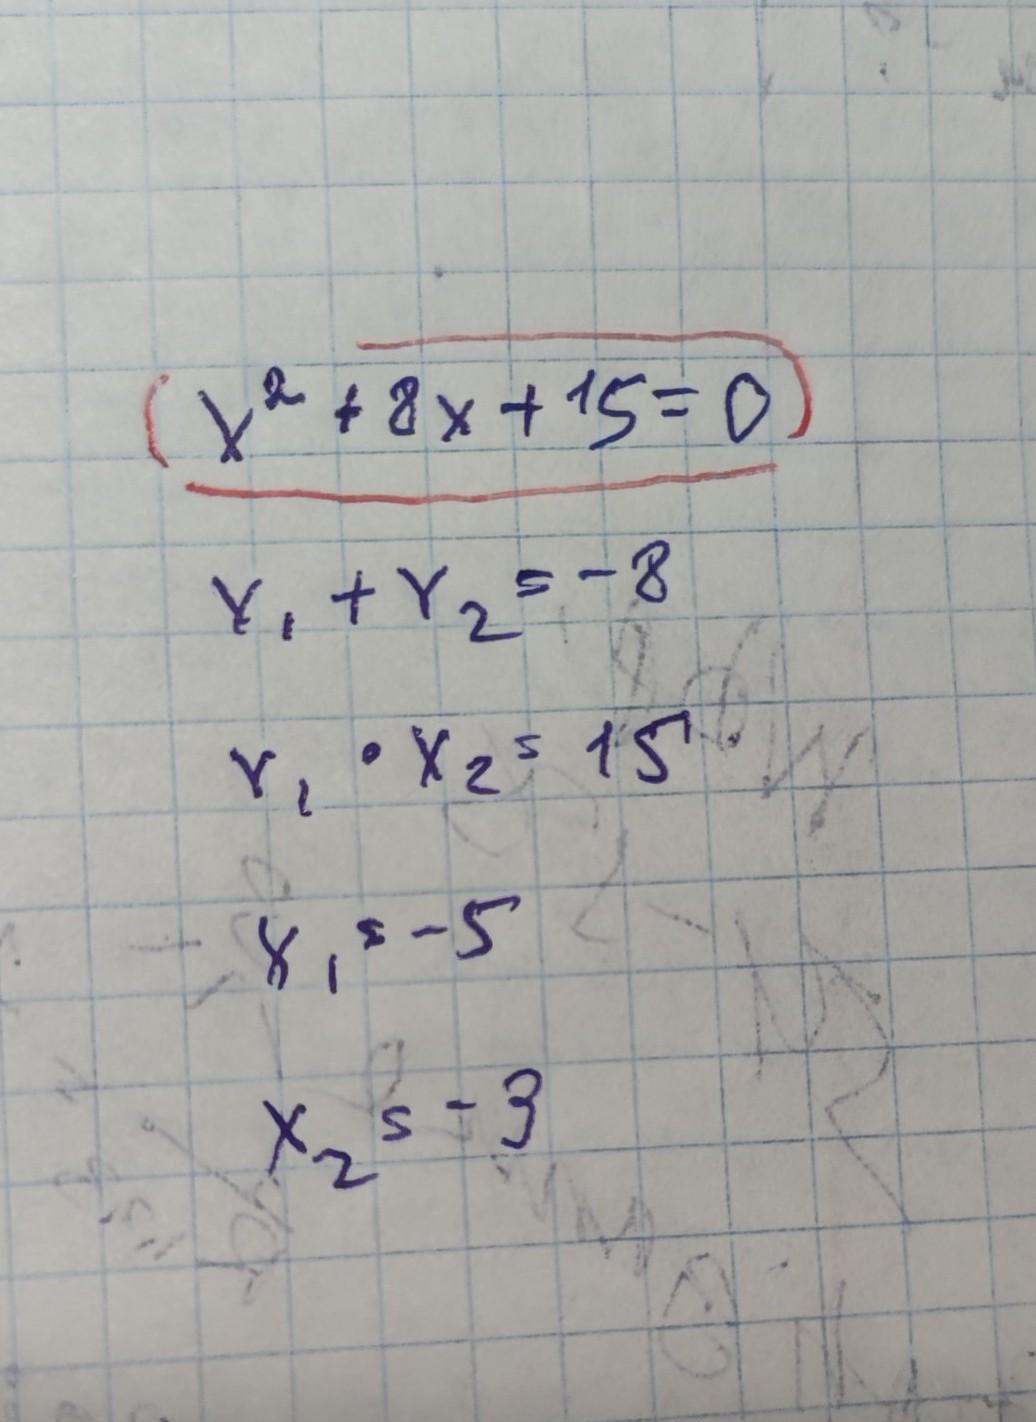 x² + 8x + 15 = 0
x₁ + x₂ = -8
x₁ • x₂ = 15
x₁ = -5
x₂ = -3